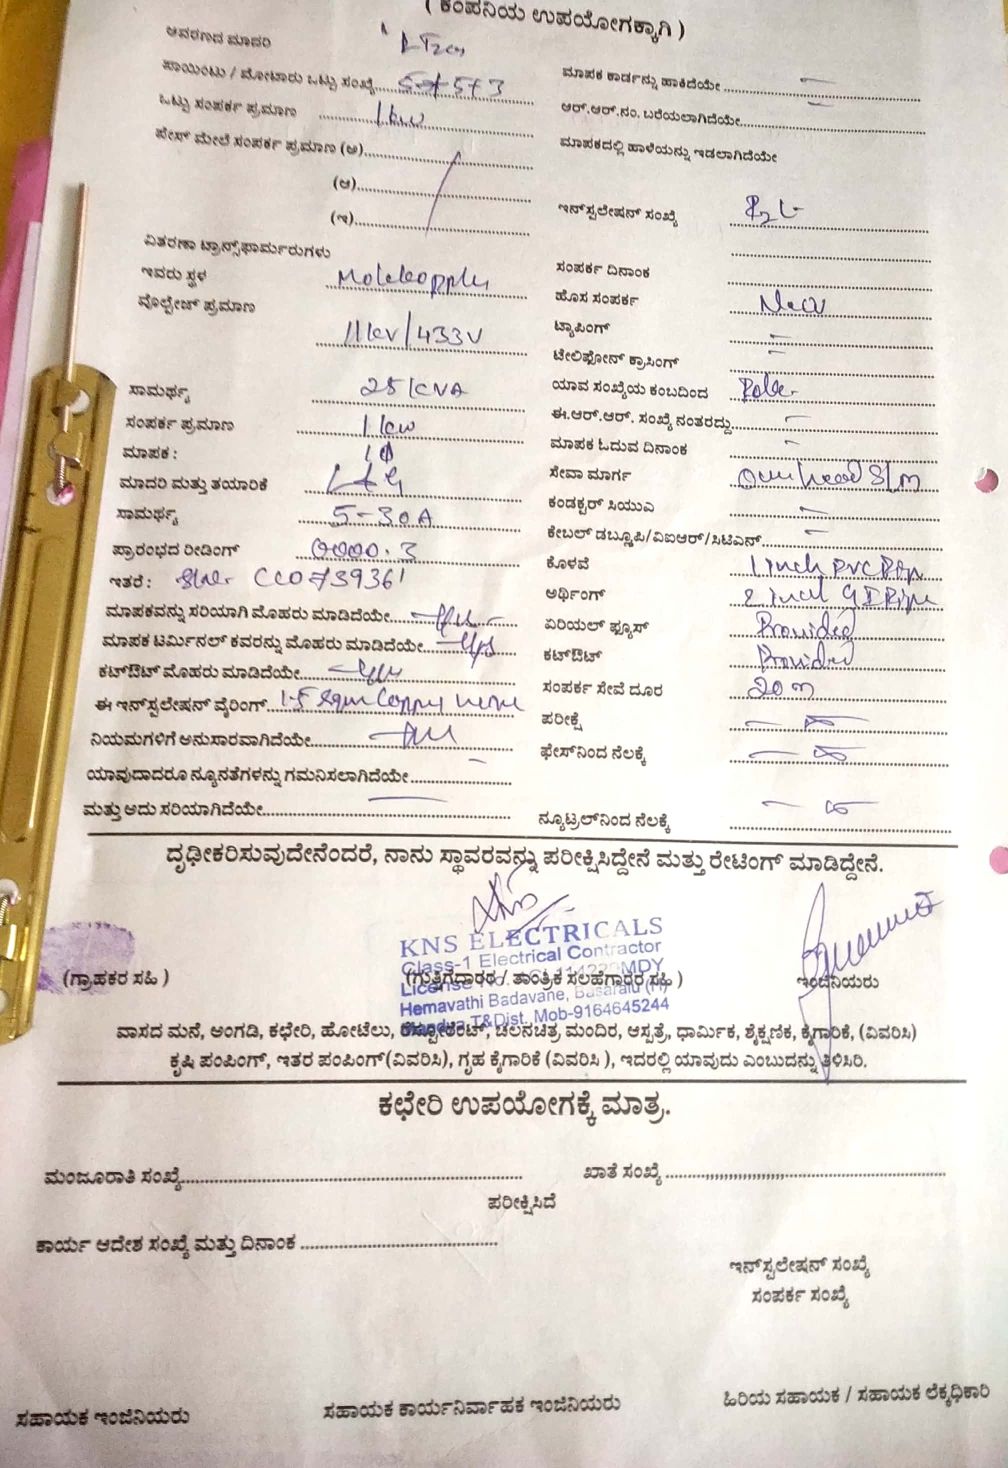 ( ಕಂಪನಿಯ ಉಪಯೋಗಕ್ಕಾಗಿ )
ಆವರಣದ ಮಾದರಿ
ಪಾಯಿಂಟು / ಮೋಟಾರು ಒಟ್ಟು ಸಂಖ್ಯೆ 5+5+3
ಒಟ್ಟು ಸಂಪರ್ಕ ಪ್ರಮಾಣ 1kw
ಫೇಸ್ ಮೇಲೆ ಸಂಪರ್ಕ ಪ್ರಮಾಣ (ಅ)
(ಆ)
(ಇ)
ವಿತರಣಾ ಟ್ರಾನ್ಸ್‌ಫಾರ್ಮರುಗಳು
ಇವರು ಸ್ಥಳ
ವೊಲ್ಟೇಜ್ ಪ್ರಮಾಣ
11kv/433V
ಸಾಮರ್ಥ್ಯ 25KVA
ಸಂಪರ್ಕ ಪ್ರಮಾಣ 1kw
ಮಾಪಕ : 1Φ
ಮಾದರಿ ಮತ್ತು ತಯಾರಿಕೆ L&G
ಸಾಮರ್ಥ್ಯ 5-30A
ಪ್ರಾರಂಭದ ರೀಡಿಂಗ್ 0000.3
ಇತರೆ :
ಮಾಪಕವನ್ನು ಸರಿಯಾಗಿ ಮೊಹರು ಮಾಡಿದೆಯೇ
ಮಾಪಕ ಟರ್ಮಿನಲ್ ಕವರನ್ನು ಮೊಹರು ಮಾಡಿದೆಯೇ
ಕಟ್‌ಔಟ್ ಮೊಹರು ಮಾಡಿದೆಯೇ
ಈ ಇನ್‌ಸ್ಟಲೇಷನ್ ವೈರಿಂಗ್ 1.5 Sqm Copper
ನಿಯಮಗಳಿಗೆ ಅನುಸಾರವಾಗಿದೆಯೇ
ಯಾವುದಾದರೂ ನ್ಯೂನತೆಗಳನ್ನು ಗಮನಿಸಲಾಗಿದೆಯೇ
ಮತ್ತು ಅದು ಸರಿಯಾಗಿದೆಯೇ
ಮಾಪಕ ಕಾರ್ಡನ್ನು ಹಾಕಿದೆಯೇ
ಆರ್.ಆರ್.ನಂ. ಬರೆಯಲಾಗಿದೆಯೇ
ಮಾಪಕದಲ್ಲಿ ಹಾಳೆಯನ್ನು ಇಡಲಾಗಿದೆಯೇ
ಇನ್‌ಸ್ಟಲೇಷನ್ ಸಂಖ್ಯೆ
ಸಂಪರ್ಕ ದಿನಾಂಕ
ಹೊಸ ಸಂಪರ್ಕ New
ಟ್ಯಾಪಿಂಗ್
ಟೇಲಿಫೋನ್ ಕ್ರಾಸಿಂಗ್
ಯಾವ ಸಂಖ್ಯೆಯ ಕಂಬದಿಂದ
ಈ.ಆರ್.ಆರ್. ಸಂಖ್ಯೆ ನಂತರದ್ದು
ಮಾಪಕ ಓದುವ ದಿನಾಂಕ
ಸೇವಾ ಮಾರ್ಗ Overhead S/M
ಕಂಡಕ್ಟರ್ ಸಿಯುಎ
ಕೇಬಲ್ ಡಬ್ಲೂಪಿ/ವಿಐಆರ್/ಸಿಟಿಎಸ್
ಕೊಳವೆ 1 inch PVC Pipe
ಅರ್ಥಿಂಗ್ 2 inch GI Pipe
ಏರಿಯಲ್ ಫ್ಯೂಸ್ Provided
ಕಟ್‌ಔಟ್ Provided
ಸಂಪರ್ಕ ಸೇವೆ ದೂರ 20 m
ಪರೀಕ್ಷೆ
ಫೇಸ್‌ನಿಂದ ನೆಲಕ್ಕೆ
ನ್ಯೂಟ್ರಲ್‌ನಿಂದ ನೆಲಕ್ಕೆ
ದೃಢೀಕರಿಸುವುದೇನೆಂದರೆ, ನಾನು ಸ್ಥಾವರವನ್ನು ಪರೀಕ್ಷಿಸಿದ್ದೇನೆ ಮತ್ತು ರೇಟಿಂಗ್ ಮಾಡಿದ್ದೇನೆ.
KNS ELECTRICALS
Class-1 Electrical Contractor
(ಗ್ರಾಹಕರ ಸಹಿ ) (ಗುತ್ತಿಗೆದಾರರ / ತಾಂತ್ರಿಕ ಸಲಹೆಗಾರರ ಸಹಿ ) ಇಂಜಿನಿಯರು
Hemavathi Badavane, Basaralu (H)
T&Dist. Mob-9164645244
ವಾಸದ ಮನೆ, ಅಂಗಡಿ, ಕಛೇರಿ, ಹೋಟೆಲು, ರೆಸ್ಟೋರೆಂಟ್, ಚಲನಚಿತ್ರ ಮಂದಿರ, ಆಸ್ಪತ್ರೆ, ಧಾರ್ಮಿಕ, ಶೈಕ್ಷಣಿಕ, ಕೈಗಾರಿಕೆ, (ವಿವರಿಸಿ)
ಕೃಷಿ ಪಂಪಿಂಗ್, ಇತರ ಪಂಪಿಂಗ್(ವಿವರಿಸಿ), ಗೃಹ ಕೈಗಾರಿಕೆ (ವಿವರಿಸಿ ), ಇದರಲ್ಲಿ ಯಾವುದು ಎಂಬುದನ್ನು ತಿಳಿಸಿರಿ.
ಕಛೇರಿ ಉಪಯೋಗಕ್ಕೆ ಮಾತ್ರ.
ಮಂಜೂರಾತಿ ಸಂಖ್ಯೆ ಖಾತೆ ಸಂಖ್ಯೆ
ಪರೀಕ್ಷಿಸಿದೆ
ಕಾರ್ಯ ಆದೇಶ ಸಂಖ್ಯೆ ಮತ್ತು ದಿನಾಂಕ
ಇನ್‌ಸ್ಟಲೇಷನ್ ಸಂಖ್ಯೆ
ಸಂಪರ್ಕ ಸಂಖ್ಯೆ
ಸಹಾಯಕ ಇಂಜಿನಿಯರು ಸಹಾಯಕ ಕಾರ್ಯನಿರ್ವಾಹಕ ಇಂಜಿನಿಯರು ಹಿರಿಯ ಸಹಾಯಕ / ಸಹಾಯಕ ಲೆಕ್ಕಧಿಕಾರಿ